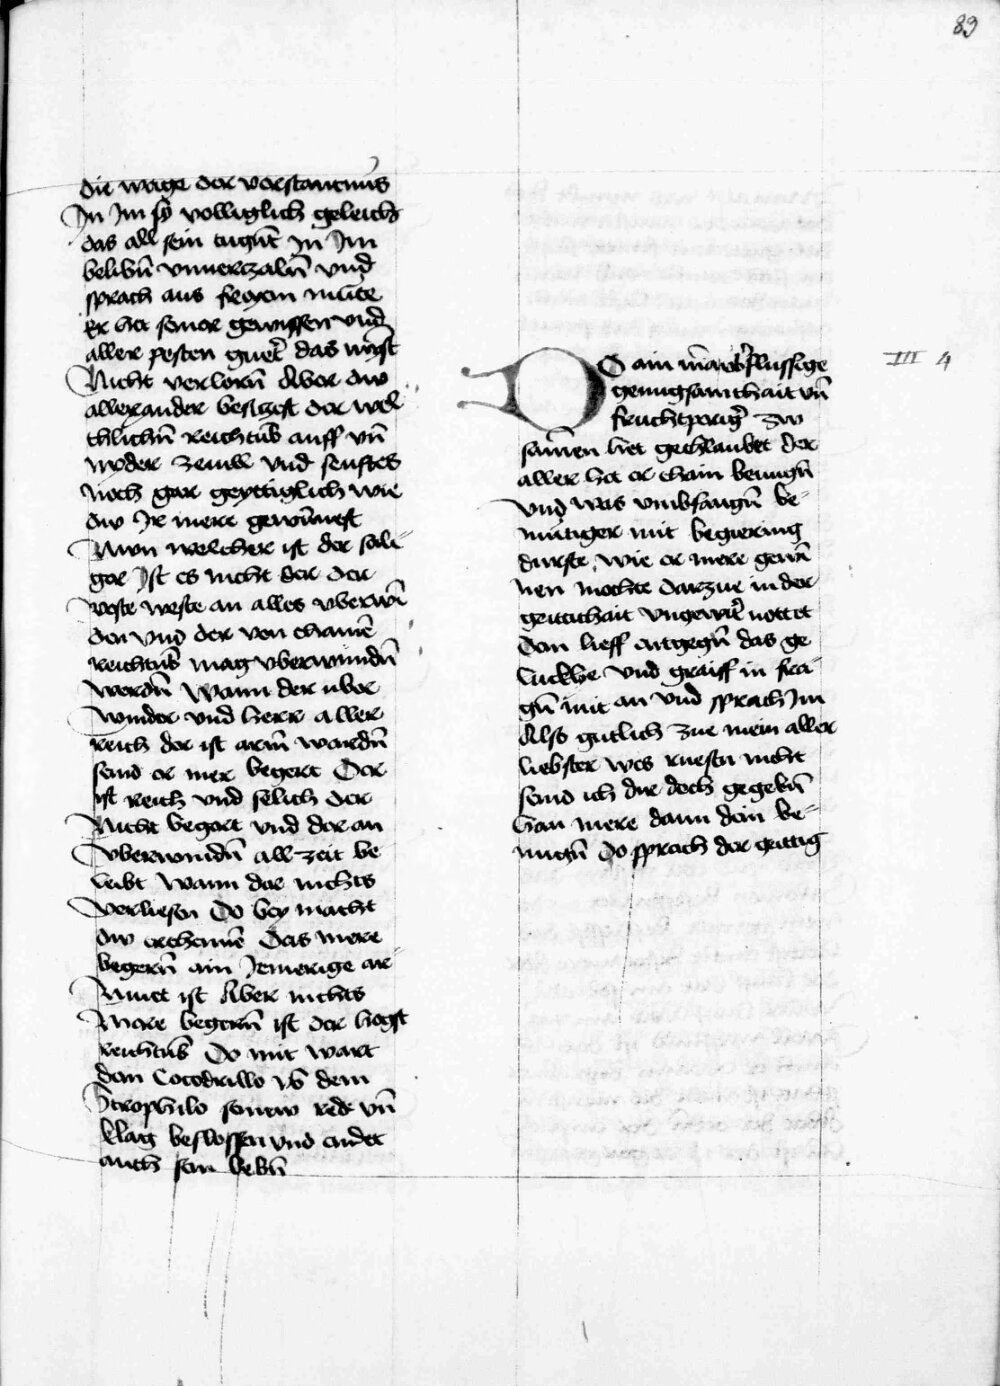 83
die wage der verstantnus
Jn Jm sey volliglich geleich
das all sein tugnt Jn Jm
belibn̄ vnuerczaln̄ vnd
sprach aus freyem mute
Er het seiner gewissen vnd
aller pesten guet̉ das mynst
Nicht verlorn̄ Aber dw
allexander besiczest der wel
tlichn̄ reichtūb auff vn̄
nyder zerwl vnd senftes
noch gar geyttiglich wie
dw Jr mere gewn̄nest
Nwn welcher ist der seli
ger Jst es nicht der der
veste weste an alles vberwi
den vnd der von chainē
reichtūb mag vberwundn̄
werdn̄ Wann der vber
winder vnd herr aller
reich der ist arm̄ wordn̄
seind er mer begert Der
ist reich vnd selich der
Nicht begert vnd der an
vberwindn̄ all zeit be
leibt Wann der nichts
verliesen Do bey macht
dw erchennē Das mere
begern̄ ain Jemerige ar
Muet ist Aber nichts
Mere begern̄ ist der hogst
reichtūb Do mit wart
dem Cocodrillo vō dem
Strophilo seinew red vn̄
klag beslossen vnd endet
auch sein lebn̄
DO ain n̄awb̉flussige
genugsamchait vn̄
fruchtperig̉ zw
samen het gechlaubet der
aller het er chain benugn̄
vnd was vmbfangn̄ be
mutiger mit begiering
durste, wie er mere gewi
nen mochte darzue in der
geittichait vngewit̉ nottet
Dem lieff entgegn̄ das ge
luckhe vnd graiff in frei
gn̄ mit an vnd sprach Jm
Also gutlich zue mein aller
liebster wes ruestu nicht
seind ich dir doch gegebn̄
han mere dann dein be
nugn̄ Do sprach der geittig
III 4